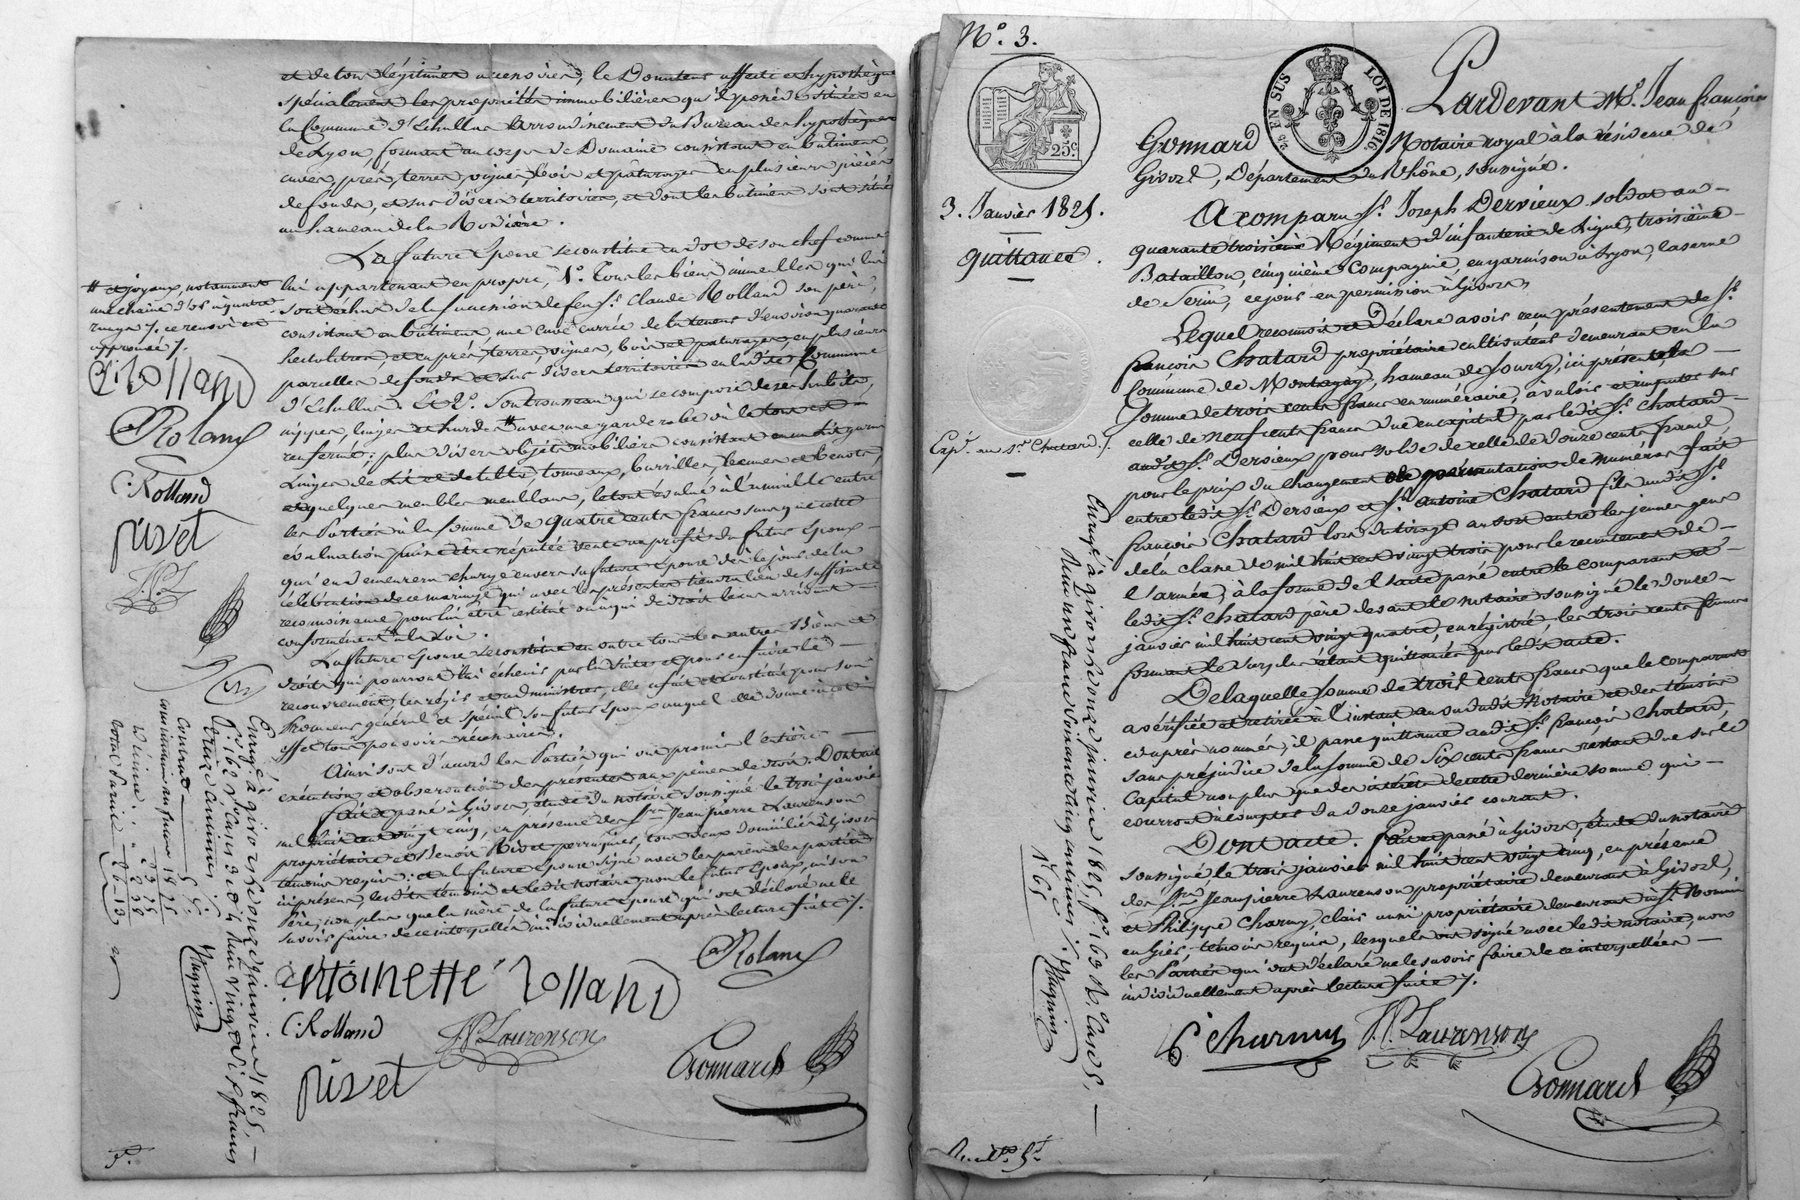 et de tous légitimes accessoires, le Donateur affecte et hypothèque
spécialement les propriétés immobilières qu'il possède situées en
la Commune d'Echallas arrondissement du Bureau des hypothèques
de Lyon formant un corps de Domaine consistant en bâtiment,
cuves, prés, terres, vignes, bois et paturages en plusieurs pièces
de fonds, et sur divers territoires, et dont les bâtiments sont situés
au hameau de la Rodière.
La future Epouse se constitue en dot de son chef comme
lui appartenant en propre, 1°. Tous les biens immeubles qui lui
sont échus de la succession de feu Sr. Claude Rolland son père,
consistant en bâtiments, une cuve carrée de la teneur d'environ quarante
hectolitres, et en prés, terres, vignes, bois et paturages en plusieurs
parcelles de fonds et sur divers territoires en la dite Commune
d'Echallas. Et 2°. Son trousseau qui se compose de ses habits,
nippes, linges et hardes # avec une garde robe où le tout est
renfermé; plus divers objets mobiliers consistant en un lit garni
Linges de Lit et de table, tonneaux, barriles, bennes et benots,
et quelques meubles meublans, le tout évalué à l'amiable entre
les Parties à la somme de quatre cents francs sans que cette
évaluation puisse être réputée vente au profit du futur Epoux
qui en demeurera chargé envers sa future Epouse dès le jour de la
célébration de ce mariage qui avec les présentes tiendra lieu de suffisante
reconnaissance pour lui être restitué ou à qui de droit le cas arrivant
conformément à la Loi.
La future Epouse se constitue en outre tous les autres Biens et
droits qui pourront lui échoir par la suite et pour en faire le
recouvrement, les régir et administrer, elle a fait et constitué pour son
Procureur général et spécial son futur Epoux auquel elle donne à cet
effet tous pouvoirs nécessaires.
Ainsi sont d'accord les Parties qui ont promis l'entière
exécution et observation des présentes aux peines de droit. Dont acte
Fait et passé à Givors, étude du notaire soussigné le trois janvier
mil huit cent vingt cinq, en présence de Srs. Jean pierre Laurenson
propriétaire et Benoît Rivet perruquier, tous deux domiciliés à Givors
témoins requis: et a la future Epouse signé avec les parens des parties
ici présens, les dits témoins et le dit notaire, non le futur Epoux, ni son
Père, non plus que la mère de la future Epouse qui ont déclaré ne le
savoir faire de ce interpellés individuellement après lecture faite /.
# et joyaux, notamment
une chaine d'or à quatre
rangs /. ce renvoi est
approuvé /.
A: Rolland
CRoland
C. Rolland
rivet
J.P.L.
Enregé. à givors le douze janvier 1825,
antoinette rolland
CRoland
C. Rolland
J.P. Laurenson
rivet
Gonnard
N°. 3.
25c.
EN SUS
LOI DE 1816
3. Janvier 1825.
Quittance.
Expé. au Sr. Chatard /.
Pardevant Me. Jean François
Gonnard Notaire royal à la résidence de
Givors, Département du Rhône, soussigné.
A comparu Sr. Joseph Dervieux soldat au
quarante troisième Régiment d'infanterie de Ligne, troisième
Bataillon, cinquième compagnie, en garnison à Lyon, caserne
de Serin, ce jour en permission à Givors,
Lequel reconnoit et Déclare avoir reçu présentement de Sr.
François Chatard propriétaire cultivateur demeurant en la
Commune de Montagny, hameau de Sourzy, ici présent, la
Somme de trois cents francs en numéraire, à valoir et imputer sur
celle de neuf cents francs due en capital par le dit Sr. Chatard
audit Sr. Dervieux pour solde de celle de douze cents francs,
pour le prix du changement de numéros fait
entre ledit Sr. Dervieux et Sr. Antoine Chatard fils audit Sr.
François Chatard lors du tirage au sort entre les jeunes gens
de la classe de mil huit cent vingt trois pour le recrutement de
l'armée, à la forme de l'acte passé entre le comparant et
ledit Sr. Chatard père devant le notaire soussigné le douze
janvier mil huit cent vingt quatre, enregistré, les trois cents francs
formant le surplus étant quittancés par ledit acte.
De laquelle somme de trois cents francs que le comparant
a vérifiée et retirée à l'instant au vu dudit Notaire et des témoins
ci après nommés, il passe quittance audit Sr. François Chatard,
sans préjudice de la somme de six cents francs restant due sur le
Capital non plus que des intérêts de cette dernière somme qui
courront à compter du douze janvier courant.
Dont acte. Fait et passé à Givors, étude du notaire
soussigné le trois janvier mil huit cent vingt cinq, en présence
des Srs. Jean pierre Laurenson propriétaire demeurant à Givors,
et Philippe Charmy, clerc aussi propriétaire demeurant à St. Romain
en Gier, témoins requis, lesquels ont signé avec le dit notaire, non
les Parties qui ont déclaré ne le savoir faire de ce interpellées
individuellement après lecture faite /.
Enregé. à givors le douze janvier 1825, f°. 169 R°. Case 5,
Reçu un franc soixante cinq centimes /.
1f. 65c
J.P. Laurenson
Gonnard